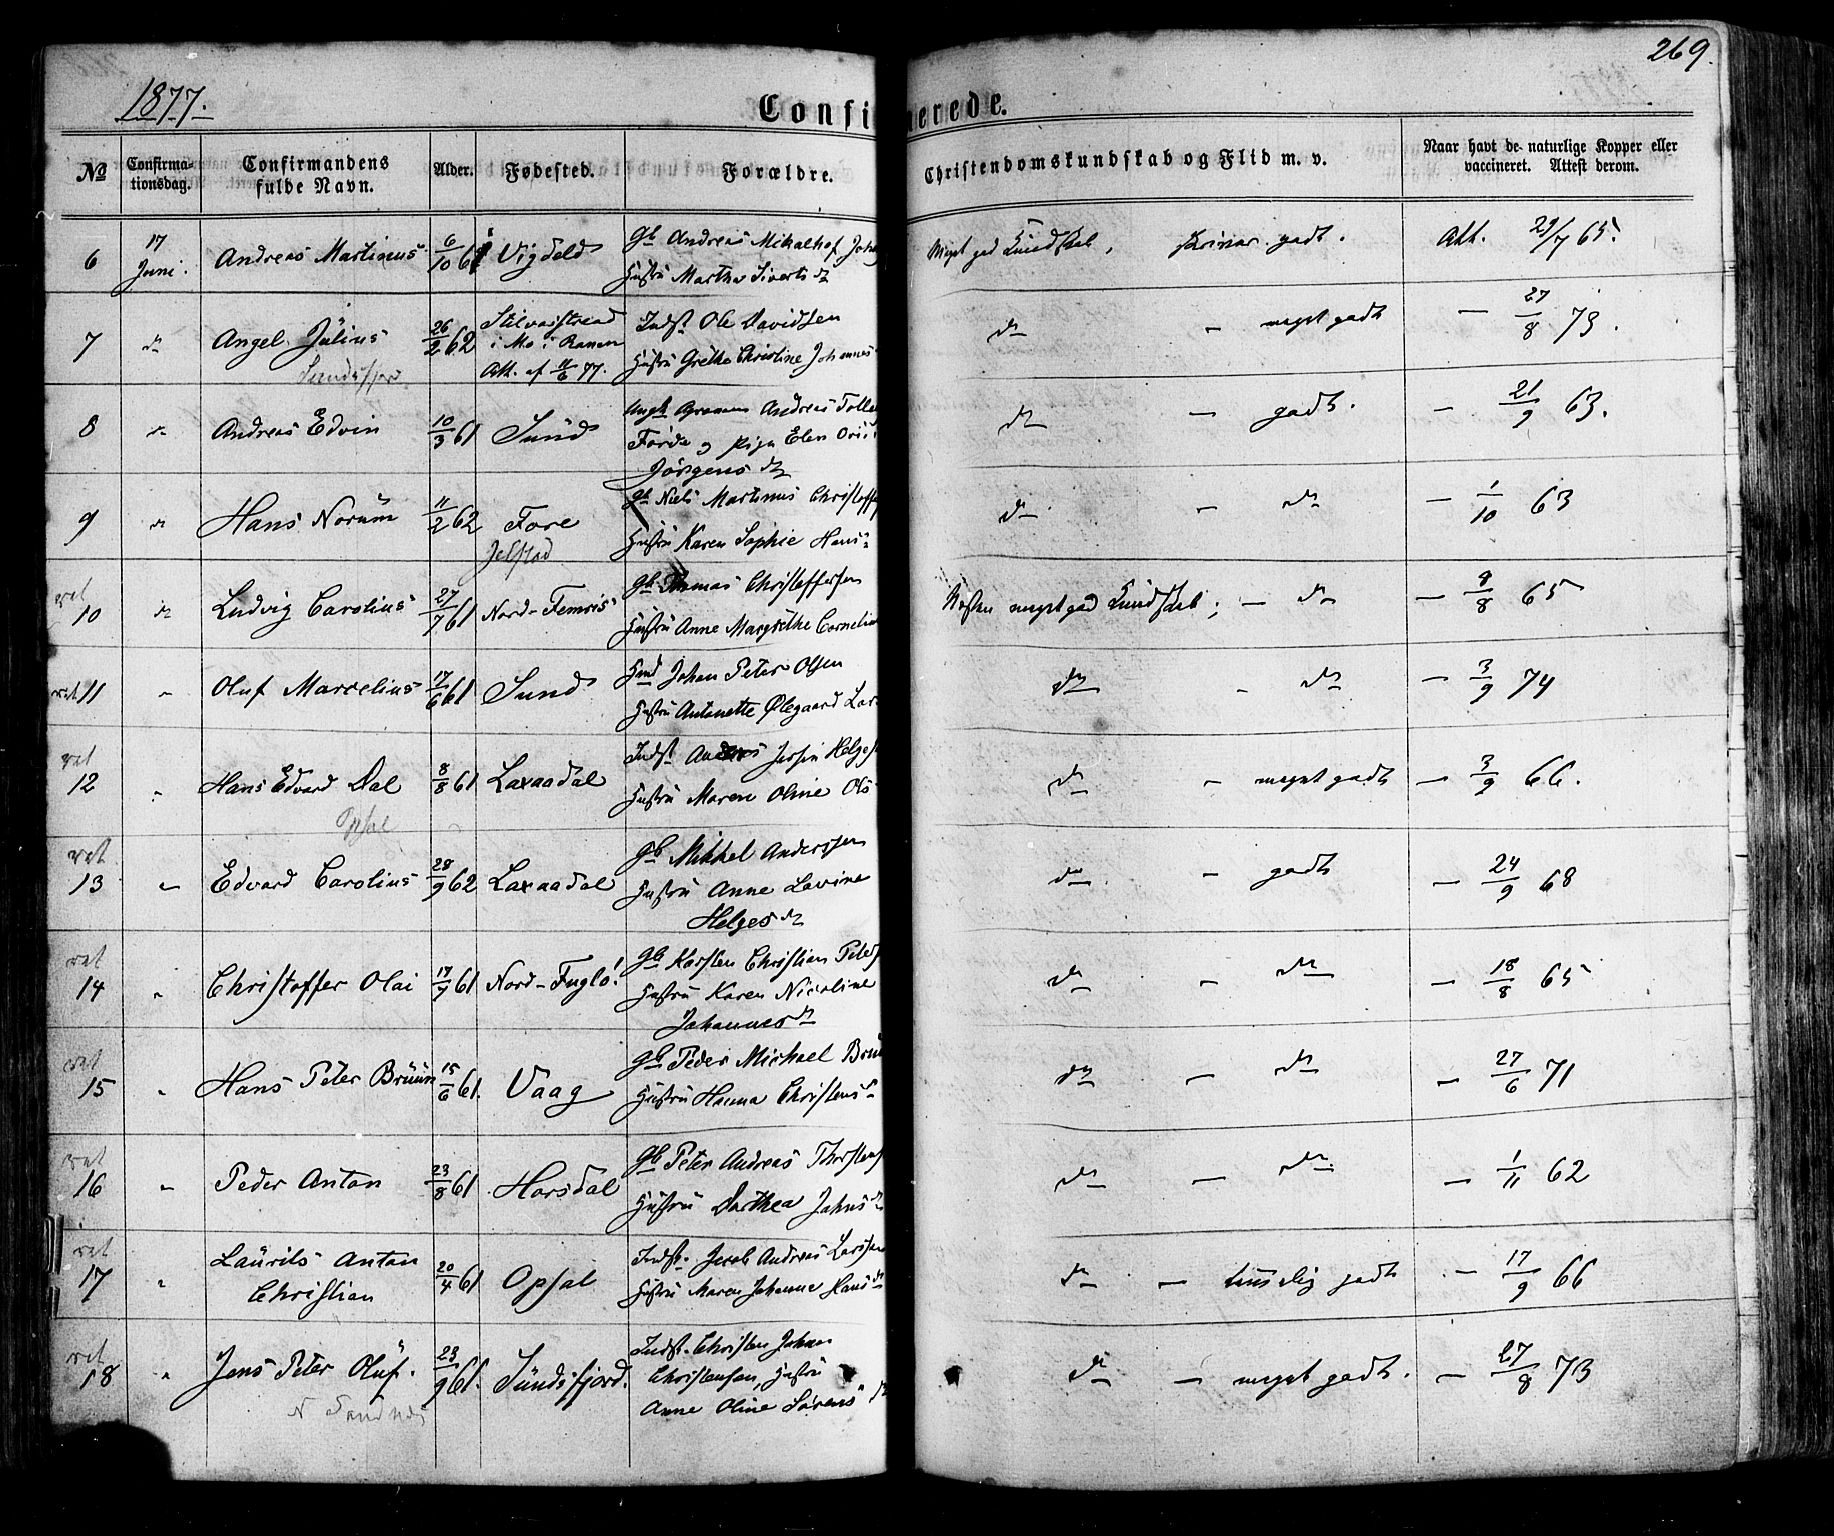 269.
1877.
Confi
merede.
No
Confirma-
tionsdag.
Confirmandens
fulde Navn.
Alder.
Fødested.
Forældre.
Christendomskundskab og Flid m. v.
Naar havt de naturlige Kopper eller
vaccineret. Attest derom.
6 17 Juni. Andreas Martinus 6/10 61 Vigdeld Gb Andreas Mikalhof Joha
Hustru Martha Siverts dr
Meget god Kundskab, godt. Att. 29/7 65.
7 do Angel Julius 26/2 62 i Mo i Ranen Indst Ole Davidsen
Sundsfjord Att. af 11/6 77. Hustru Grethe Christine Johannes
do — meget godt — 27/8 73.
8 do Andreas Edvin 10/3 61 Sund Ungk Andreas Tolle
Førde og pige Elen
Jørgens dr
do — godt. — 21/9 63.
9 do Hans Norum 11/2 62 Fore Gb Niels Martinus Christoffe
Jelstad Hustru Karen Sophie Hans
do — do — 1/10 63
ret
10 do Ludvig Carolius 27/7 61 Nord-Femris Gb Thomas Christoffersen
Hustru Anne Margrethe Cornelius
Næsten meget god Kundskab; — do — 8/8 65
ret 11 " Oluf Marcelius 17/6 61 Sund Johan Peter Olsen
Hustru Antonette Ølegaard Lar
do — do — 3/9 74
ret
12 " Hans Edvard Dal 8/8 61 Laxaadal Indst Anders Helges
Opsal Hustru Maren Oline Ols
do — meget godt — 3/9 66.
ret
13 " Edvard Carolius 28/9 62 Laxaadal Gb Mikkel Anderssen
Hustru Anne Lovine
Helges dr
do — godt — 24/9 68
ret
14 " Christoffer Olai 17/7 61 Nord-Fuglø Gb Karsten Christian Peters
Hustru Karen Nicoline
Johannes dr
do — do — 18/8 65
ret
15 " Hans Peter Bruun 15/6 61. Vaag Gb Peder Michael Bruu
Hustru Hanna Christens
do — do — 27/6 71
ret
16 " Peder Anton 23/8 61 Horsdal Gb Peter Andreas Thorstens
Hustru Dorthea Johns dr
do — do — 1/11 62
ret
17 " Laurits Anton 20/4 61 Opsal Indst. Jacob Andreas Larssen
Christian Hustru Maren Johanne Hans dr
do — godt — 17/9 66
ret
18 " Jens Peter Oluf. 23/9 61. Sundsfjord. Indst. Christen Johan
N Sandnes Christensen, Hustru
Anne Oline Sørens dr
do — meget godt. — 27/8 73